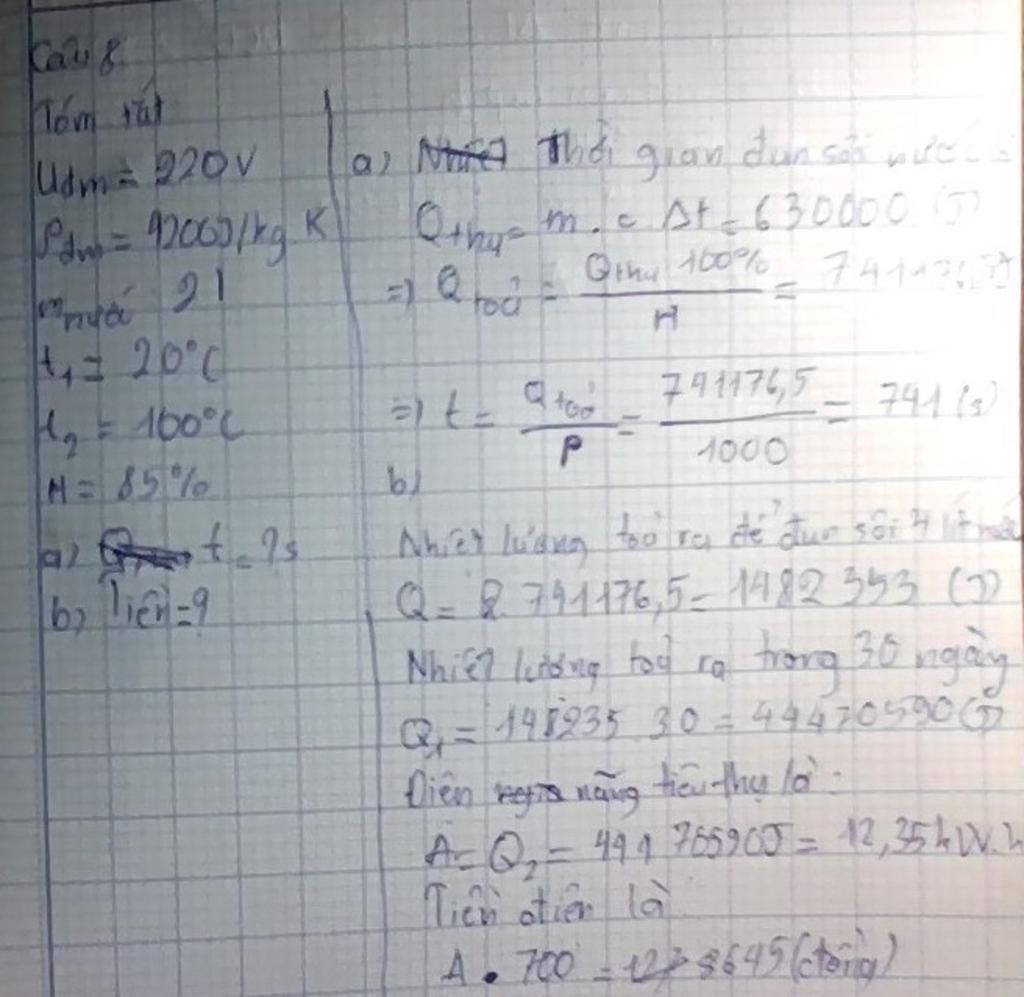 Câu 8
Tóm tắt
Uđm = 220V
Pđm = 4200J/kg.K
mnước 2l
t1 = 20°C
t2 = 100°C
H = 85%
a) t = ?s
b) Tiền = ?
a) Thời gian đun sôi nước :
Qthu = m.c Δt = 630000 (J)
=> Qtoả = Qthu 100% / H = 741176,5
=> t = Qtoả / P = 741176,5 / 1000 = 741 (s)
b)
Nhiệt lượng toả ra để đun sôi 4 lít nước
Q = 2. 741176,5 = 1482353 (J)
Nhiệt lượng toả ra trong 30 ngày
Q1 = 148235 30 = 44470590 (J)
Điện năng tiêu thụ là :
A = Q2 = 44470590J = 12,35kW.h
Tiền điện là
A . 700 = 8645 (đồng)